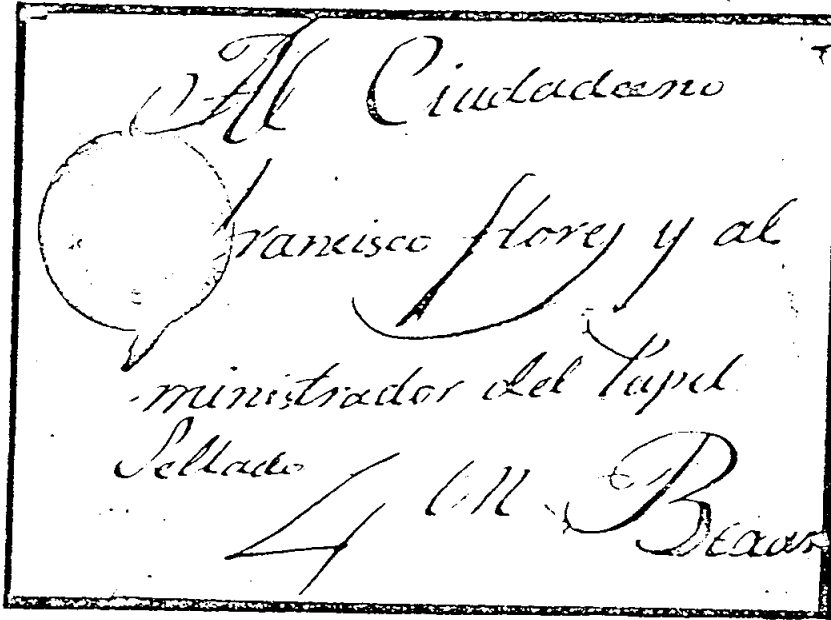 Al Ciudadano
Francisco Flores y al
ministrador del Papel
Sellado 4 en Bexar